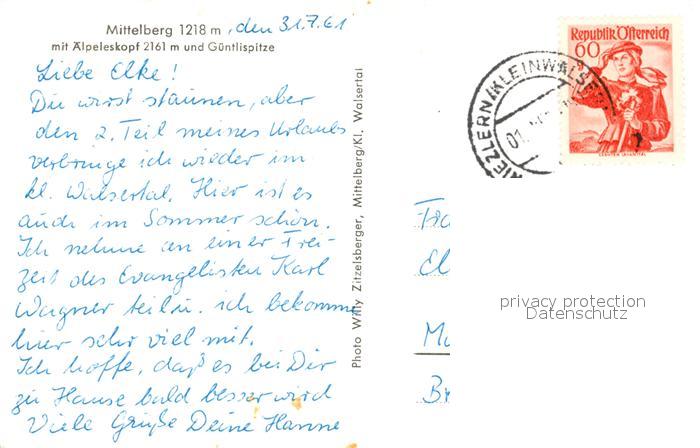 Mittelberg 1218 m, den 31.7.61
mit Älpeleskopf 2161 m und Güntlispitze
Liebe Elke!
Du wirst staunen, aber
den 2. Teil meines Urlaubs
verbringe ich wieder im
kl. Walsertal. Hier ist es
auch im Sommer schön.
Ich nehme an einer Frei-
zeit des Evangelisten Karl
Wagner teil u. ich bekomme
hier sehr viel mit.
Ich hoffe, daß es bei Dir
zu Hause bald besser wird
Viele Grüße Deine Hanne
Photo Willy Zitzelsberger, Mittelberg/Kl. Walsertal
Republik Österreich
60
RIEZLERN/KLEINWALSER
01.
Fr
El
M
B
privacy protection
Datenschutz